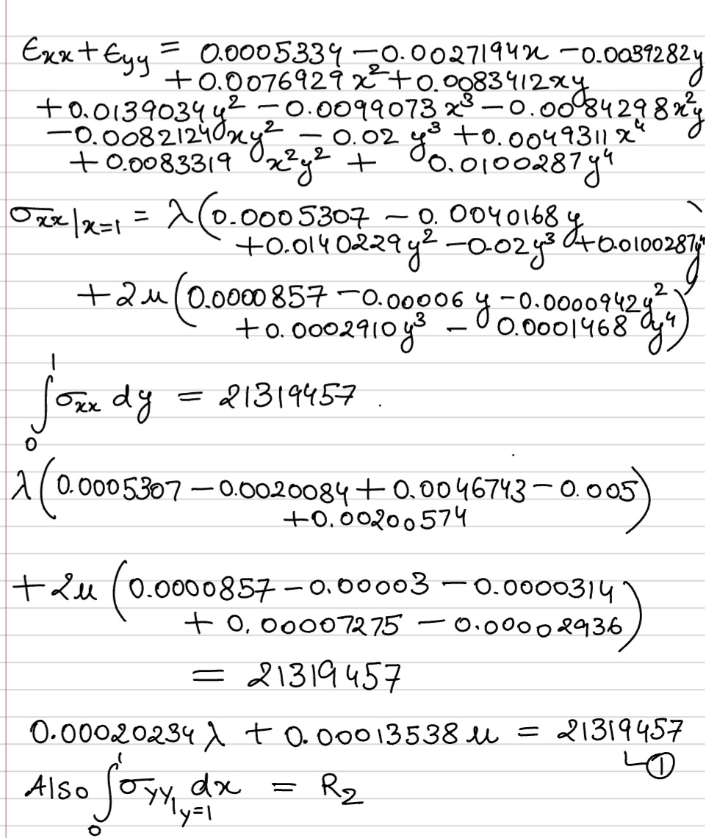 Exx + Eyy = 0.0005334 - 0.0027194x - 0.0039282y
+ 0.0076929x² + 0.0083412xy
+ 0.0139034y² - 0.0099073x³ - 0.0084298x²y
- 0.0082124xy² - 0.02y³ + 0.0049311x⁴
+ 0.0083319 x²y² + 0.0100287y⁴
σxx|x=1 = λ(0.0005307 - 0.0040168y
+ 0.0140229y² - 0.02y³ + 0.0100287y⁴)
+ 2u(0.0000857 - 0.00006y - 0.0000942y²
+ 0.0002910y³ - 0.0001468y⁴)
∫₀¹ σxx dy = 21319457.
λ(0.0005307 - 0.0020084 + 0.0046743 - 0.005
+ 0.00200574)
+ 2u(0.0000857 - 0.00003 - 0.0000314
+ 0.00007275 - 0.00002936)
= 21319457
0.00020234λ + 0.00013538u = 21319457
①
Also ∫₀¹ σyy|y=1 dx = R₂